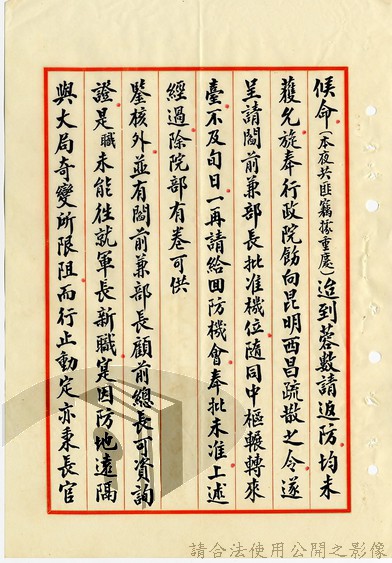 候命(本夜共匪竊據重慶)迨到蓉數請返防均未
獲允旋奉行政院飭向昆明西昌疏散之令遂
呈請閻前兼部長批准機位隨同中樞輾轉來
臺不及旬日一再請給回防機會奉批未准上述
經過除院部有卷可供
鑒核外並有閻前兼部長顧前總長可資詢
證是職未能往就軍長新職寔因防地遠隔
與大局奇變所限阻而行止動定亦秉長官
請合法使用公開之影像